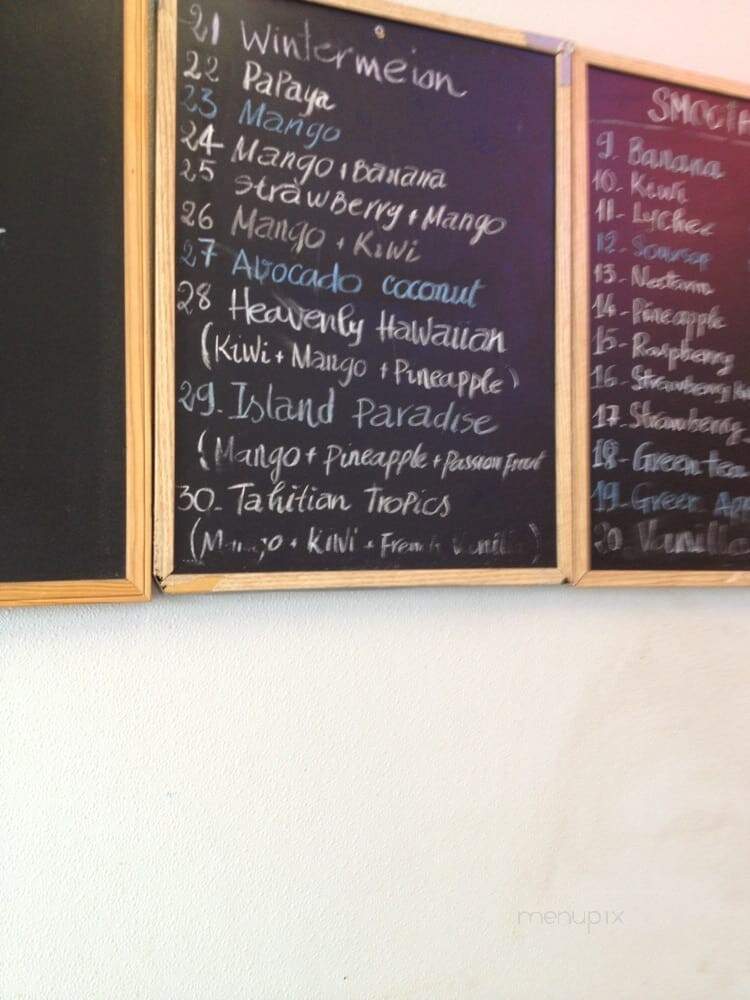 21 Wintermelon
22 Papaya
23 Mango
24 Mango + Banana
25 Strawberry + Mango
26 Mango + Kiwi
27 Avocado coconut
28 Heavenly Hawaiian
(Kiwi + Mango + Pineapple)
29. Island Paradise
(Mango + Pineapple + Passion Fruit
30. Tahitian Tropics
(Mango + Kiwi + French Vanilla)
SMOOTH
9. Banana
10. Kiwi
11- Lychee
12- Soursop
13-
14- Pineapple
15- Raspberry
16- Strawberry
17- Strawberry
18- Green tea
19- Green App
20 Vanilla
menupix